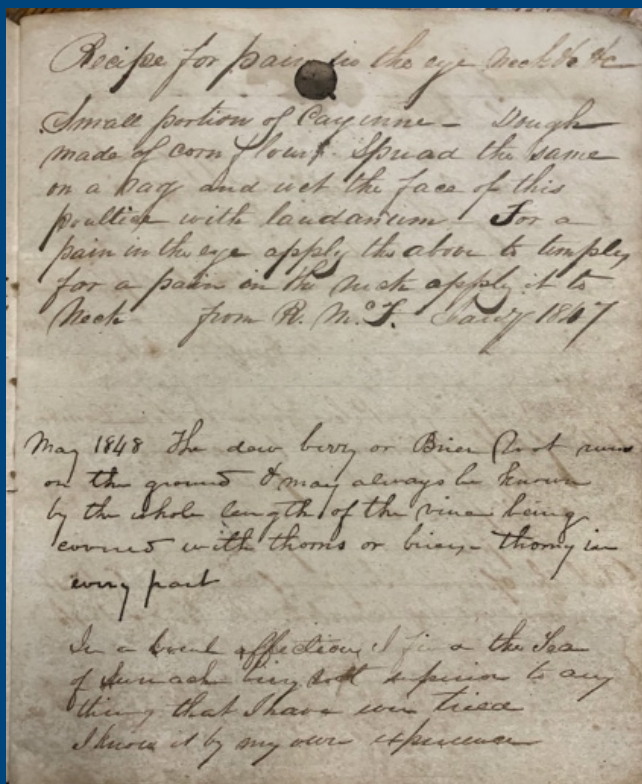 Recipe for pain in the eye neck &c &c
Small portion of Cayenne - Dough
made of corn flour. Spread the same
on a rag and wet the face of this
poultice with laudanum - For a
pain in the eye apply the above to temples
for a pain in the neck apply it to
Neck from R. McF. Jany 1847
May 1848 The dew berry or Brier Root runs
on the ground & may always be known
by the whole length of the vine being
covered with thorns or briers thorny in
every part
In a affection I the Tea
of Sumach root superior to any
thing that I have ever tried
I know it by my own experience